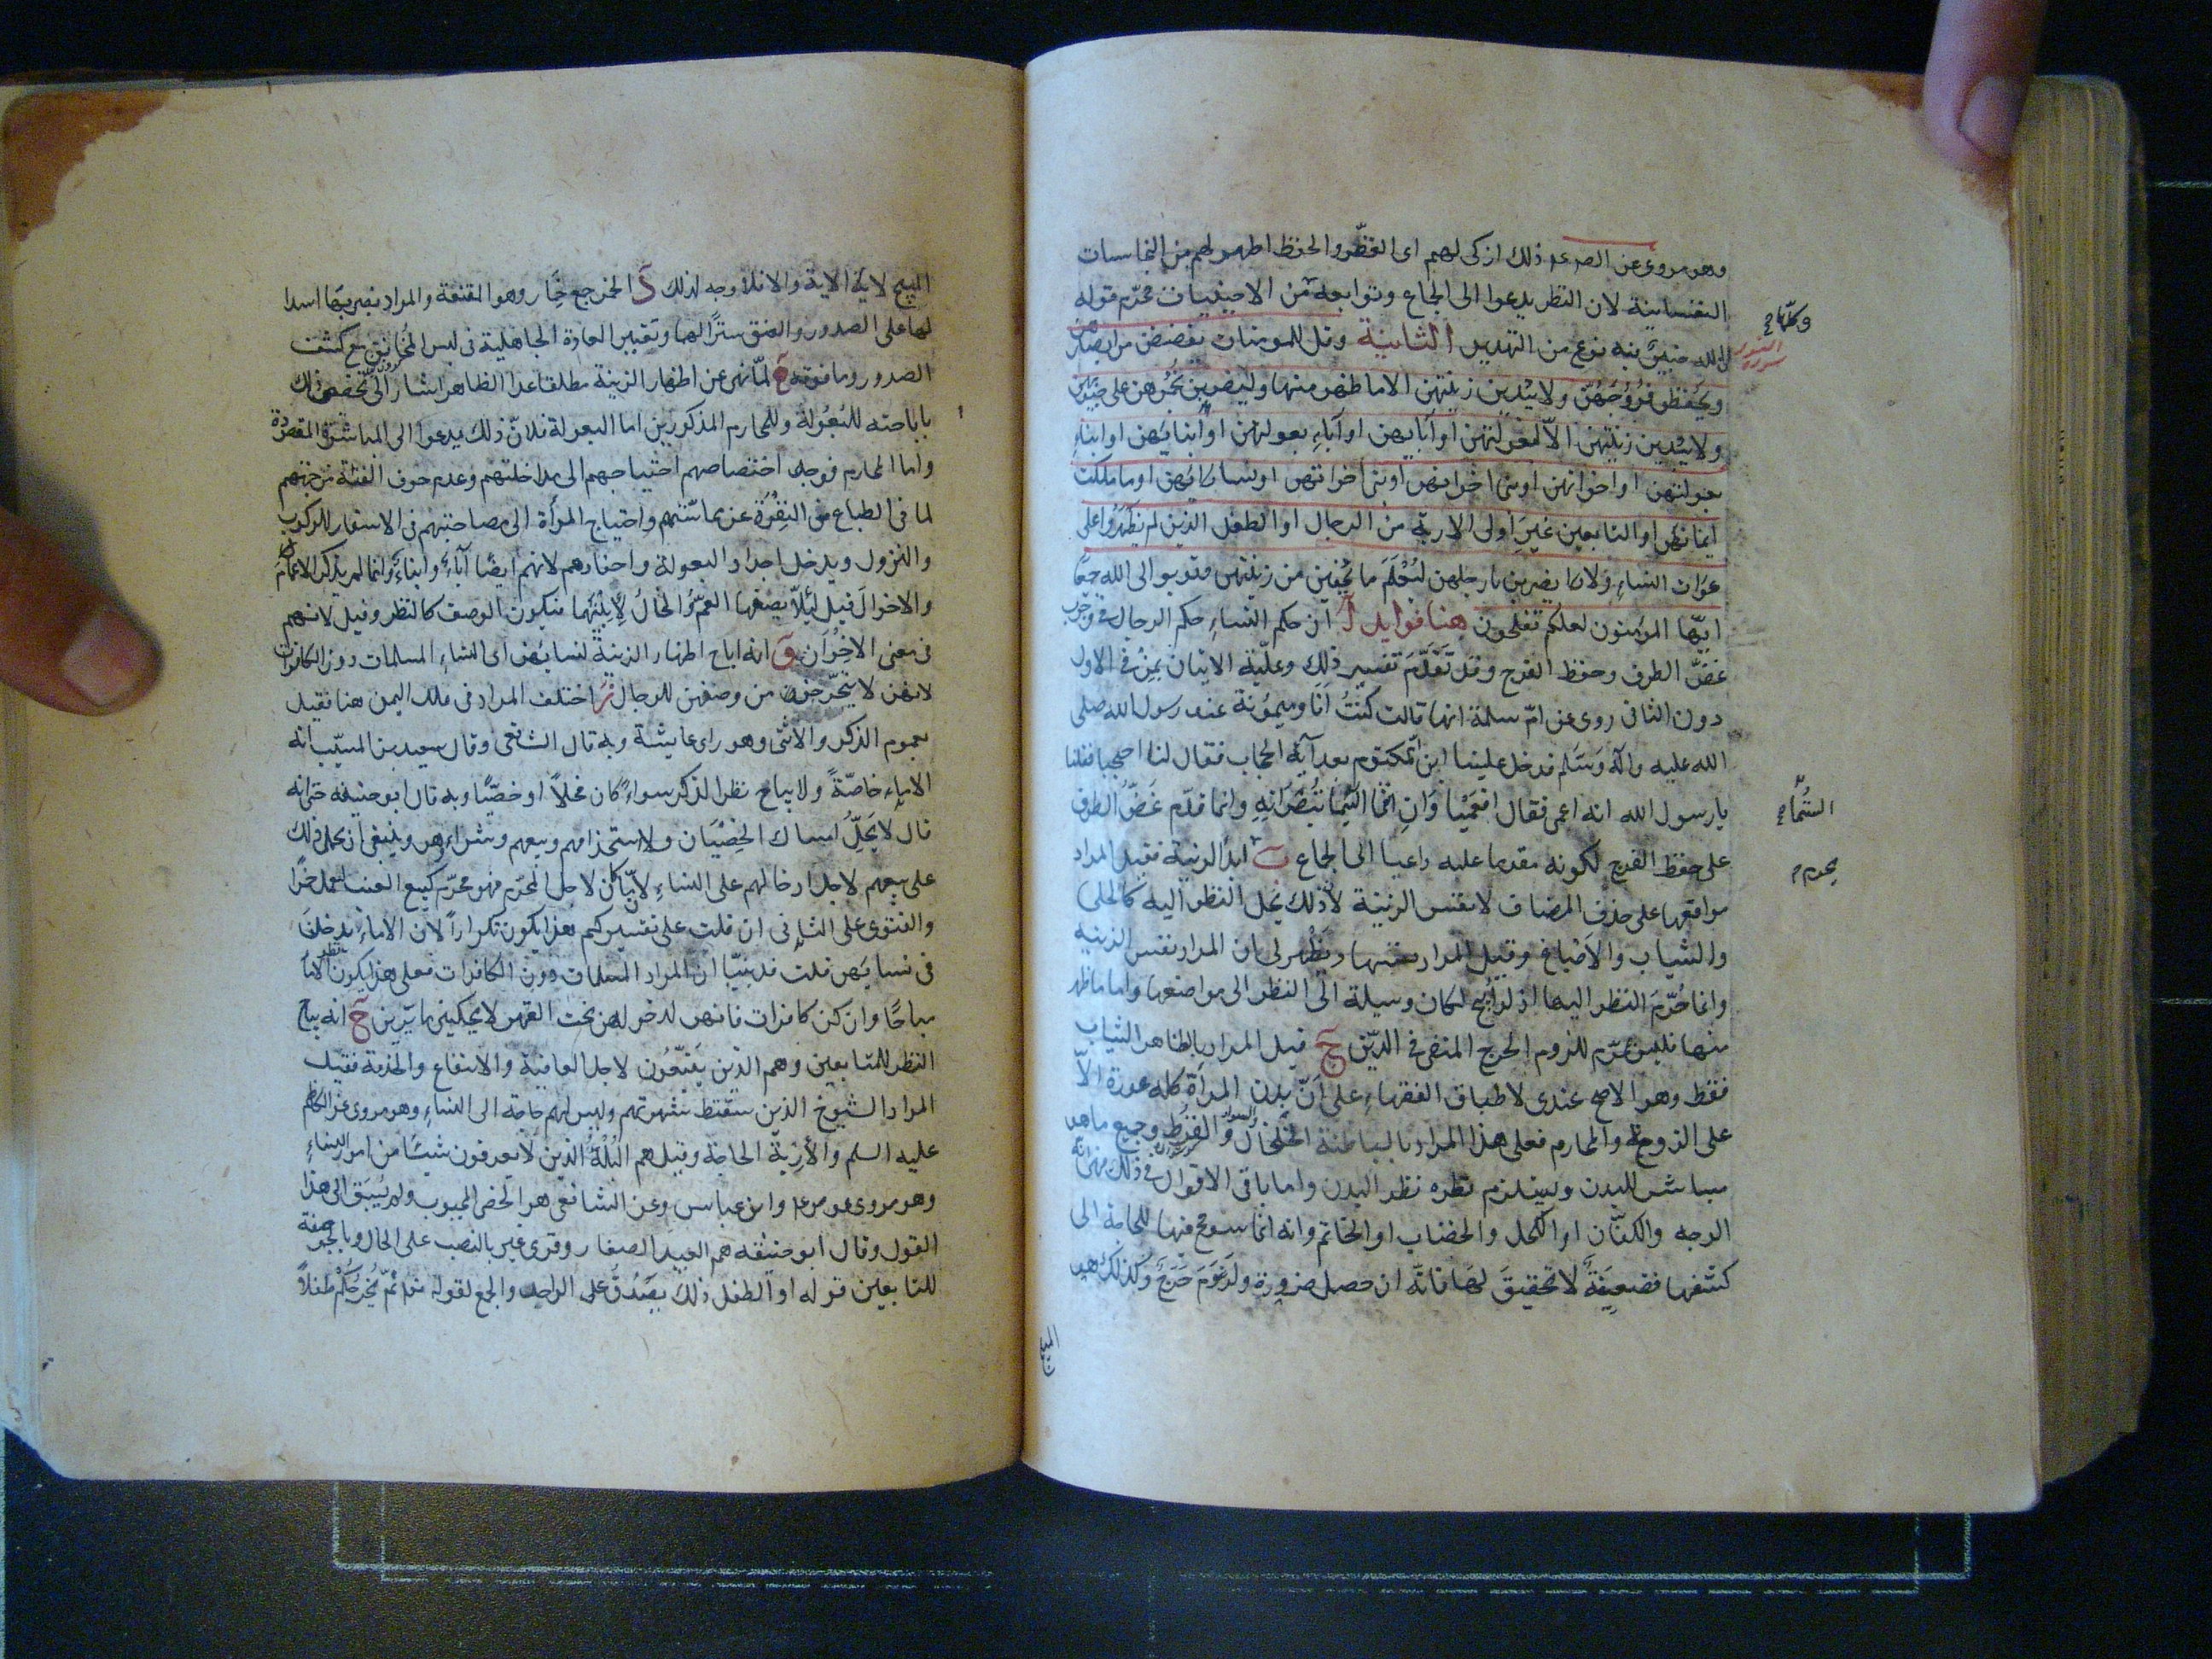 وهو مروى عن الص ع ذلك ازكى لهم اى الغضّ والحفظ اطهر لهم من النجاسات
النفسانية لان النظر يدعوا الى الجماع وتوابعه من الاجنبيات محرّم قوله
ان الله خبير فيه نوع من التهديد الثانية وقل للمومنات يغضضن من ابصارهن
ويحفظن فُرُوجَهُنّ ولا يبدين زينتهن الا ما ظهر منها وليضربن بخُمُرهن على جيوبهن
ولا يبدين زينتهن الّا لبعولتهن او آبايهن او آباءِ بعولتهن او ابنايهن او ابناءِ
بعولتهن او اخوانهن او بنى اخوانهن او بنى اخواتهن او نسايهن او ما ملكت
ايمانهن او التابعين غيرِ اولى الاربة من الرجال او الطفل الذين لم يظهروا على
عورات النساءِ ولا يضربن بارجلهن ليُعْلَمَ ما يُخْفِين من زينتهن وتوبوا الى الله جميعًا
ايّها المؤمنون لعلكم تفلحون هنا فوايد آ ان حكم النساءِ حكم الرجال فى وجوب
غضّ الطرف وحفظ الفرج وقد تَقَدَّمَ تفسير ذلك وعلّية الاتيان بمِنْ فى الاول
دون الثانى روى عن امّ سلمة انها قالت كنتُ انا وميمُونة عند رسول الله صلى
الله عليه وآله وَسَلم فدخل علينا ابن امّ مكتوم بعد آية الحجاب فقال لنا احتجبا فقلنا
يا رسول الله انه اعمى فقال افعَمْيا وَانِ انتما الَيْسَا تُبْصِرَانِهِ وانما قدّم غَضُّ الطرف
على حفظ الفرج لكونه مقدما عليه داعيا الى الجماع ب ابداَ الزينة فقيل المراد
مواقعها على حذف المضاف لا نفس الزينة لان ذلك يحل النظر اليه كالحلى
والثياب والاَصْباغ وقيل المراد نفسها ويَظْهر لى ان المراد نفس الزينة
وانما حُرّمَ النظر اليها اذ لو اُبيح لكان وسيلة الى النظر الى مواضعها واما ما ظهر
منها فليس بمحرّم للزوم الحرج المنفى فى الدّين ج قيل المراد بالظاهر الثياب
فقط وهو الاصح عندى لاطباق الفقهاءِ على انّ بدن المراَة كله عورة الّا
على الزوج والمحارم فعلى هذا المراد بالباطنة الخلخال والسوار والقرُط وجميع ما هو
مباشر للبدن ويستلزم نظره نظر البدن واما باقى الاقوال فى ذلك من انّه
الوجه والكفّان او الكحل والخضاب او الخاتم وانه انما سومح فيها للحاجة الى
كشفها فضعِيفَةٌ لا تحقيقَ لهَا فانّه ان حصل ضرورة ولزومَ حَرَجٍ وكذلك هو
وكلّها ح
سورة النور
السُّمّا ح
يحرم م
المبيح
المبيح لاية الاية والا فلا وجه لذلك د الخمر جمع خِمَار وهو المقنعة والمراد بضربها اسدا
لها على الصدور والعنق سترًا لهما وتغيير العادة الجاهلية فى لبس المخانق مع كشف
الصدور وما فوقه ه لمّا نهى عن اظهار الزينة مطلقا عدا الظاهر اشار الى تخصيص ذلك
باباحته للبُعُولة وللمحارم المذكورين اما البعولة فلانّ ذلك يدعوا الى المباشرة المقصودة
واما المحارم فوجه اختصاصهم احتياجهم الى مداخلتهم وعدم خوف الفتنة من جهتهم
لما فى الطباع من النِفْرَة عن مماسّتهم واحتياج المرأة الى مصاحبتهم فى الاسفار للركوب
والنزول ويدخل اجداد البعولة واحفادهم لانهم ايضًا آباءٌ وابناءٌ وانما لم يذكر الاعمامَ
والاخوالَ قيل لِئَلّا يصفها العمّ والخالُ لِابْنَيْهما فيكون الوصف كالنظر وقيل لانهم
فى معنى الاخوَان و انه اباح اظهار الزينة لنسايهن اى النساءِ المسلمات دون الكافرات
لانهن لا يتحرّجن من وصفهن للرجال ز اختلف المراد فى ملك اليمن هنا فقيل
بعموم الذكر والانثى وهو راى عايشة وبه قال الشافعى وقال سعيد بن المسيّب انه
الاماءِ خاصّةً ولا يباح نظر الذكر سواءً كان فحلًا او خصّيًا وبه قال ابو حنيفه حتى انه
قال لا يَحِلُّ امساك الخِصْيَان ولا استخدامهم وبيعهم وشراءِهم وينبغى ان يحمل ذلك
على بيعهم لاجل ادخالهم على النساءِ لانّ ما كان لاجل المحرّم فهو محرّم كبيع العنب ليعمل خمرًا
والفتوى على الثانى ان قلت على تفسيركم هذا يكون تكرارًا لان الاماءَ يدخلنَ
فى نسايهن قلت قد بينّا ان المراد المسلمات دون الكافرات فعلى هذا يكون نظر الاماء
مباحًا وان كن كافرات فانهن لدخولهن تحت القهر لا يحكين ما يرين ح انه يباح
النظر للتابعين وهم الذين يَتبعُون لاجل العافية والانتفاع والخدمة فقيل
المراد الشيوخ الذين سقطت شهوتهم وليس لهم حاجة الى النساءِ وهو مروى عن الكاظم
عليه السلم والأرْبَة الحاجة وقيل هم البُلْهُ الذين لا يعرفون شيئًا من امور النساءِ
وهو مروى عن ص ع وابن عباس وعن الشافعى هو الخصى المجبوب ولم يُسْبَق الى هذا
القول وقال ابو حنيفه هم العبيد الصغار وقرئ غير بالنصب على الحال وبالجر صفة
للتابعين قوله او الطفل ذلك يصْدُقُ على الواحد والجمع لقوله ثم يُخْرِجُكُمْ طفلًا